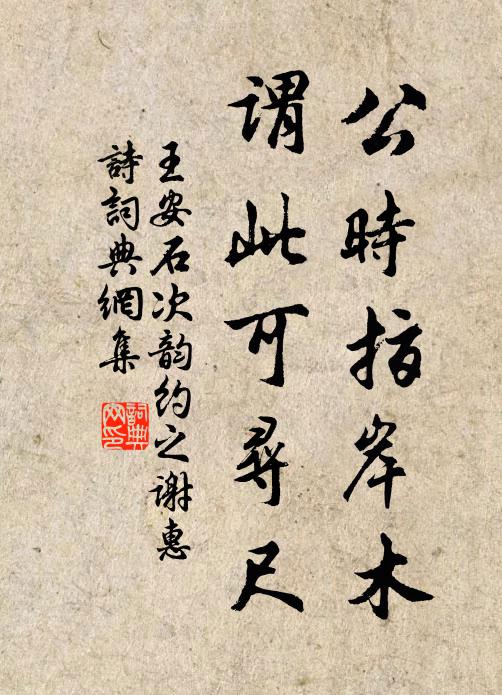 公時指岸木
謂此可尋尺
王安石次韵約之谢惠
詩詞典網集
詞典网印